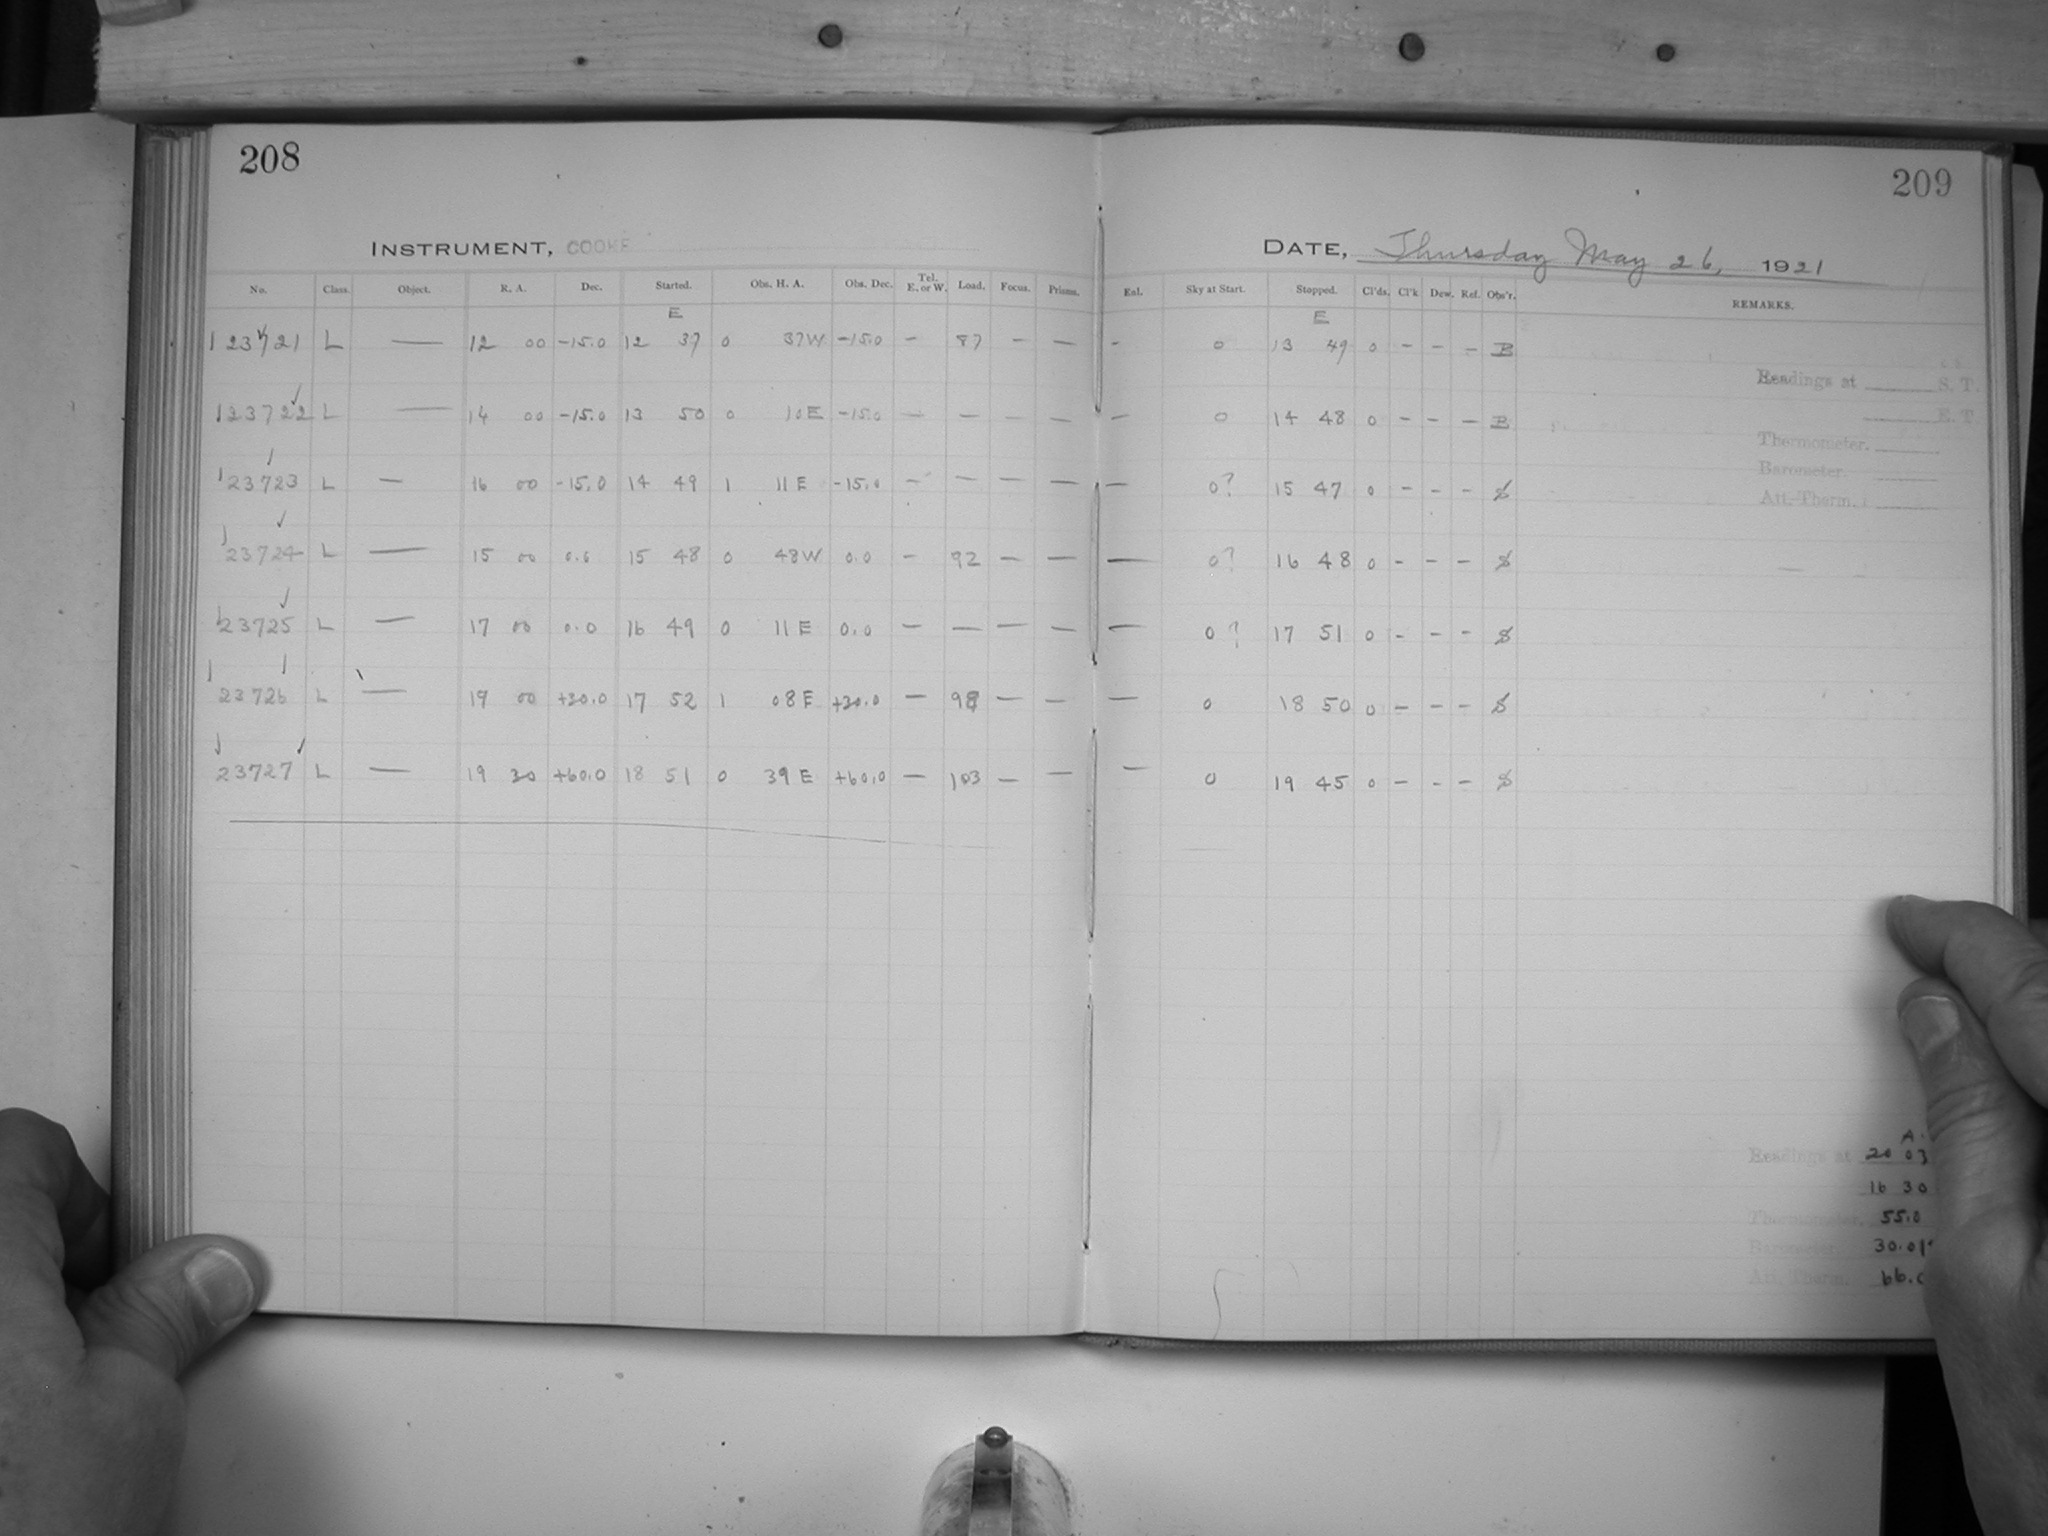 208
209
INSTRUMENT, COOKE
DATE, Thursday May 26, 1921
No. Class. Object. R. A. Dec. Started. Obs. H. A. Obs. Dec. Tel. E. or W. Load. Focus. Prisms. Enl. Sky at Start. Stopped. Cl'ds. Cl'k Dew. Ref. Obs'r. REMARKS.
E E
23721 L — 12 00 -15.0 12 37 0 37W -15.0 - 87 - — - 0 13 49 0 - - - B
23722 L — 14 00 -15.0 13 50 0 10E -15.0 — — — — — 0 14 48 0 - - - B
23723 L — 16 00 -15.0 14 49 1 11E -15.0 - — — — — 0? 15 47 0 - - - S
23724 L — 15 00 0.0 15 48 0 48W 0.0 - 92 — — — 0? 16 48 0 - - - S
23725 L — 17 00 0.0 16 49 0 11E 0.0 — — — — — 0? 17 51 0 - - - S
23726 L — 19 00 +30.0 17 52 1 08E +30.0 — 98 — — — 0 18 50 0 - - - S
23727 L — 19 30 +60.0 18 51 0 39E +60.0 — 103 — — — 0 19 45 0 - - - S
Readings at S. T.
E. T
Thermometer.
Barometer.
Att. Therm.
A.
Readings at 20 03
16 30
Thermometer. 55.0
Barometer. 30.01
Att. Therm. 66.0